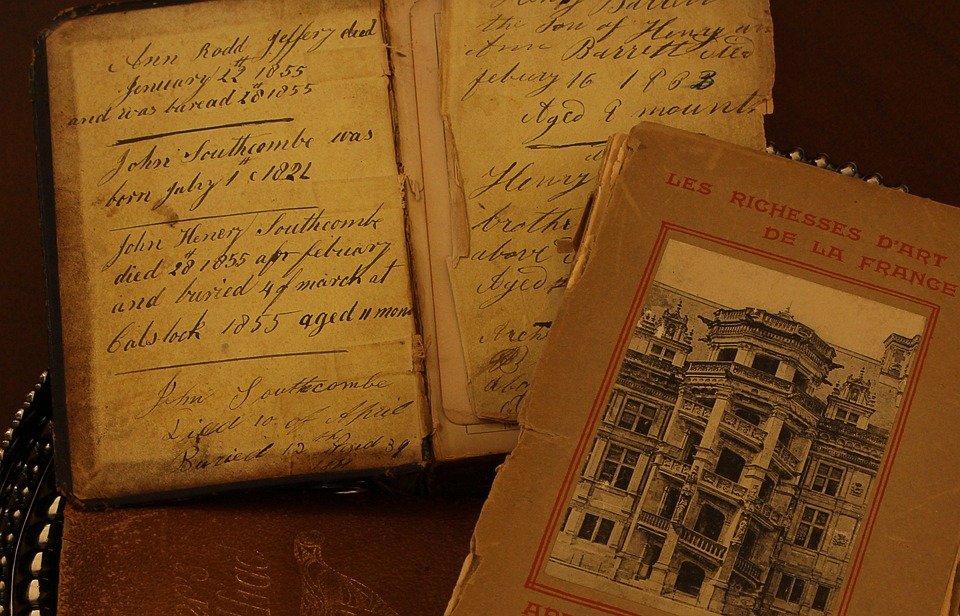 Ann Rodd Jeffery died
Jenuary 22th 1855
and was buread 28 1855
John Southcombe was
born july 1st 1821
John Henery Southcombe
died 28th 1855 apr febuary
and buried 4 of march at
Cals lock 1855 aged 11 mon
John Southcombe
Died 10 of April
Buried 13
Henry Barrett
the Son of Henry an
Ann Barrett died
febury 16 1883
Aged 9 mounth
Henry
brothe
above
Aged
LES RICHESSES D'ART
DE LA FRANCE